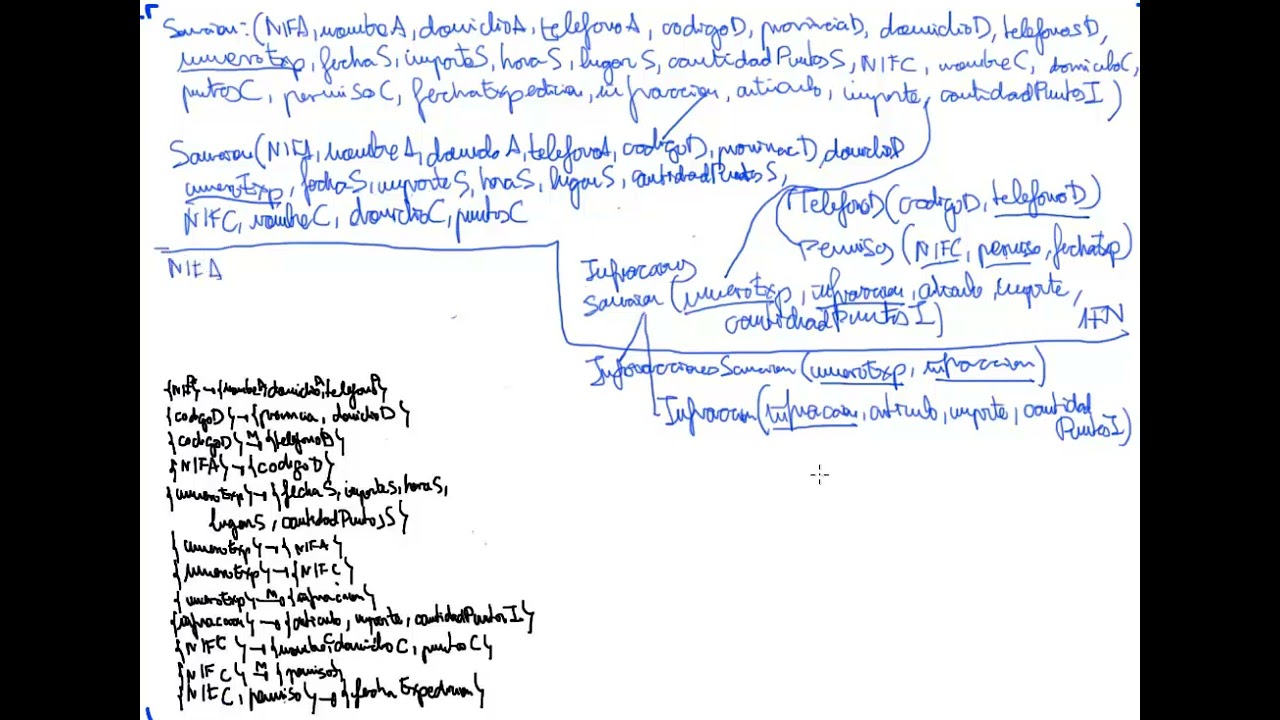 Sancion:(NIFA, nombreA, domicilioA, telefonoA, codigoD, provinciaD, domicilioD, telefonosD,
numeroExp, fechaS, importeS, horaS, lugarS, cantidadPuntosS, NIFC, nombreC, domicilioC,
puntosC, permisoC, fechaExpedicion, infraccion, articulo, importe, cantidadPuntosI)
Sancion(NIFA, nombreA, domicilioA, telefonoA, codigoD, provinciaD, domicilioD
numeroExp, fechaS, importeS, horaS, lugarS, cantidadPuntosS,
NIFC, nombreC, domicilioC, puntosC
TelefonoD(codigoD, telefonoD)
Permisos (NIFC, permiso, fechaExp)
NIFA
Infracciones
Sancion (numeroExp, infraccion, articulo, importe,
cantidadPuntosI)
1FN
InfraccionesSancion (numeroExp, infraccion)
Infraccion(infraccion, articulo, importe, cantidad
PuntosI)
{NIFA}→{nombreA, domicilioA, telefonoA}
{codigoD}→{provincia, domicilioD}
{codigoD} M→ {telefonoD}
{NIFA}→{codigoD}
{numeroExp}→{fechaS, importeS, horaS,
lugarS, cantidadPuntosS}
{numeroExp}→{NIFA}
{numeroExp}→{NIFC}
{numeroExp} M→ {infraccion}
{infraccion}→{articulo, importe, cantidadPuntosI}
{NIFC}→{nombreC, domicilioC, puntosC}
{NIFC} M→ {permiso}
{NIFC, permiso}→{fechaExpedicion}